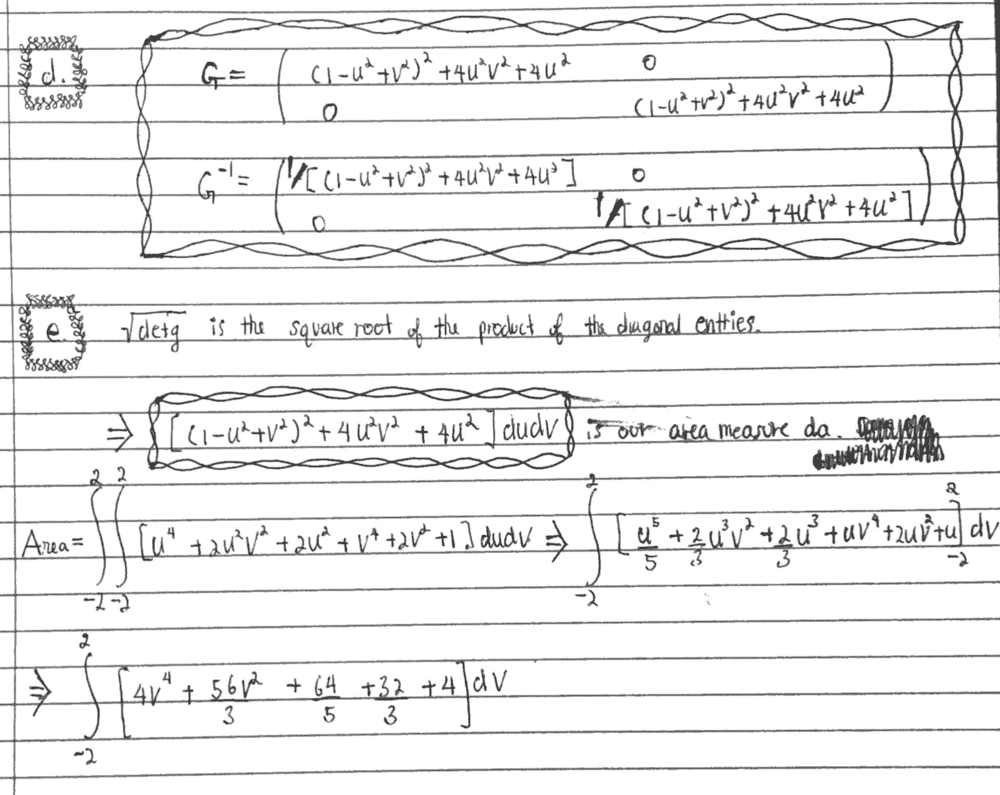 d. G = ( (1-u²+v²)² + 4u²v² + 4u² 0
0 (1-u²+v²)² + 4u²v² + 4u² )
G⁻¹ = ( 1/[(1-u²+v²)² + 4u²v² + 4u²] 0
0 1/[(1-u²+v²)² + 4u²v² + 4u²] )
e. √detg is the square root of the product of the diagonal entries.
⇒ [(1-u²+v²)² + 4u²v² + 4u²] dudv is our area measure da.
Area = ∫₋₂² ∫₋₂² [u⁴ + 2u²v² + 2u² + v⁴ + 2v² + 1] dudv ⇒ ∫₋₂² [u⁵/5 + 2/3 u³v² + 2/3 u³ + uv⁴ + 2uv² + u]₋₂² dv
⇒ ∫₋₂² [4v⁴ + 56v²/3 + 64/5 + 32/3 + 4] dv